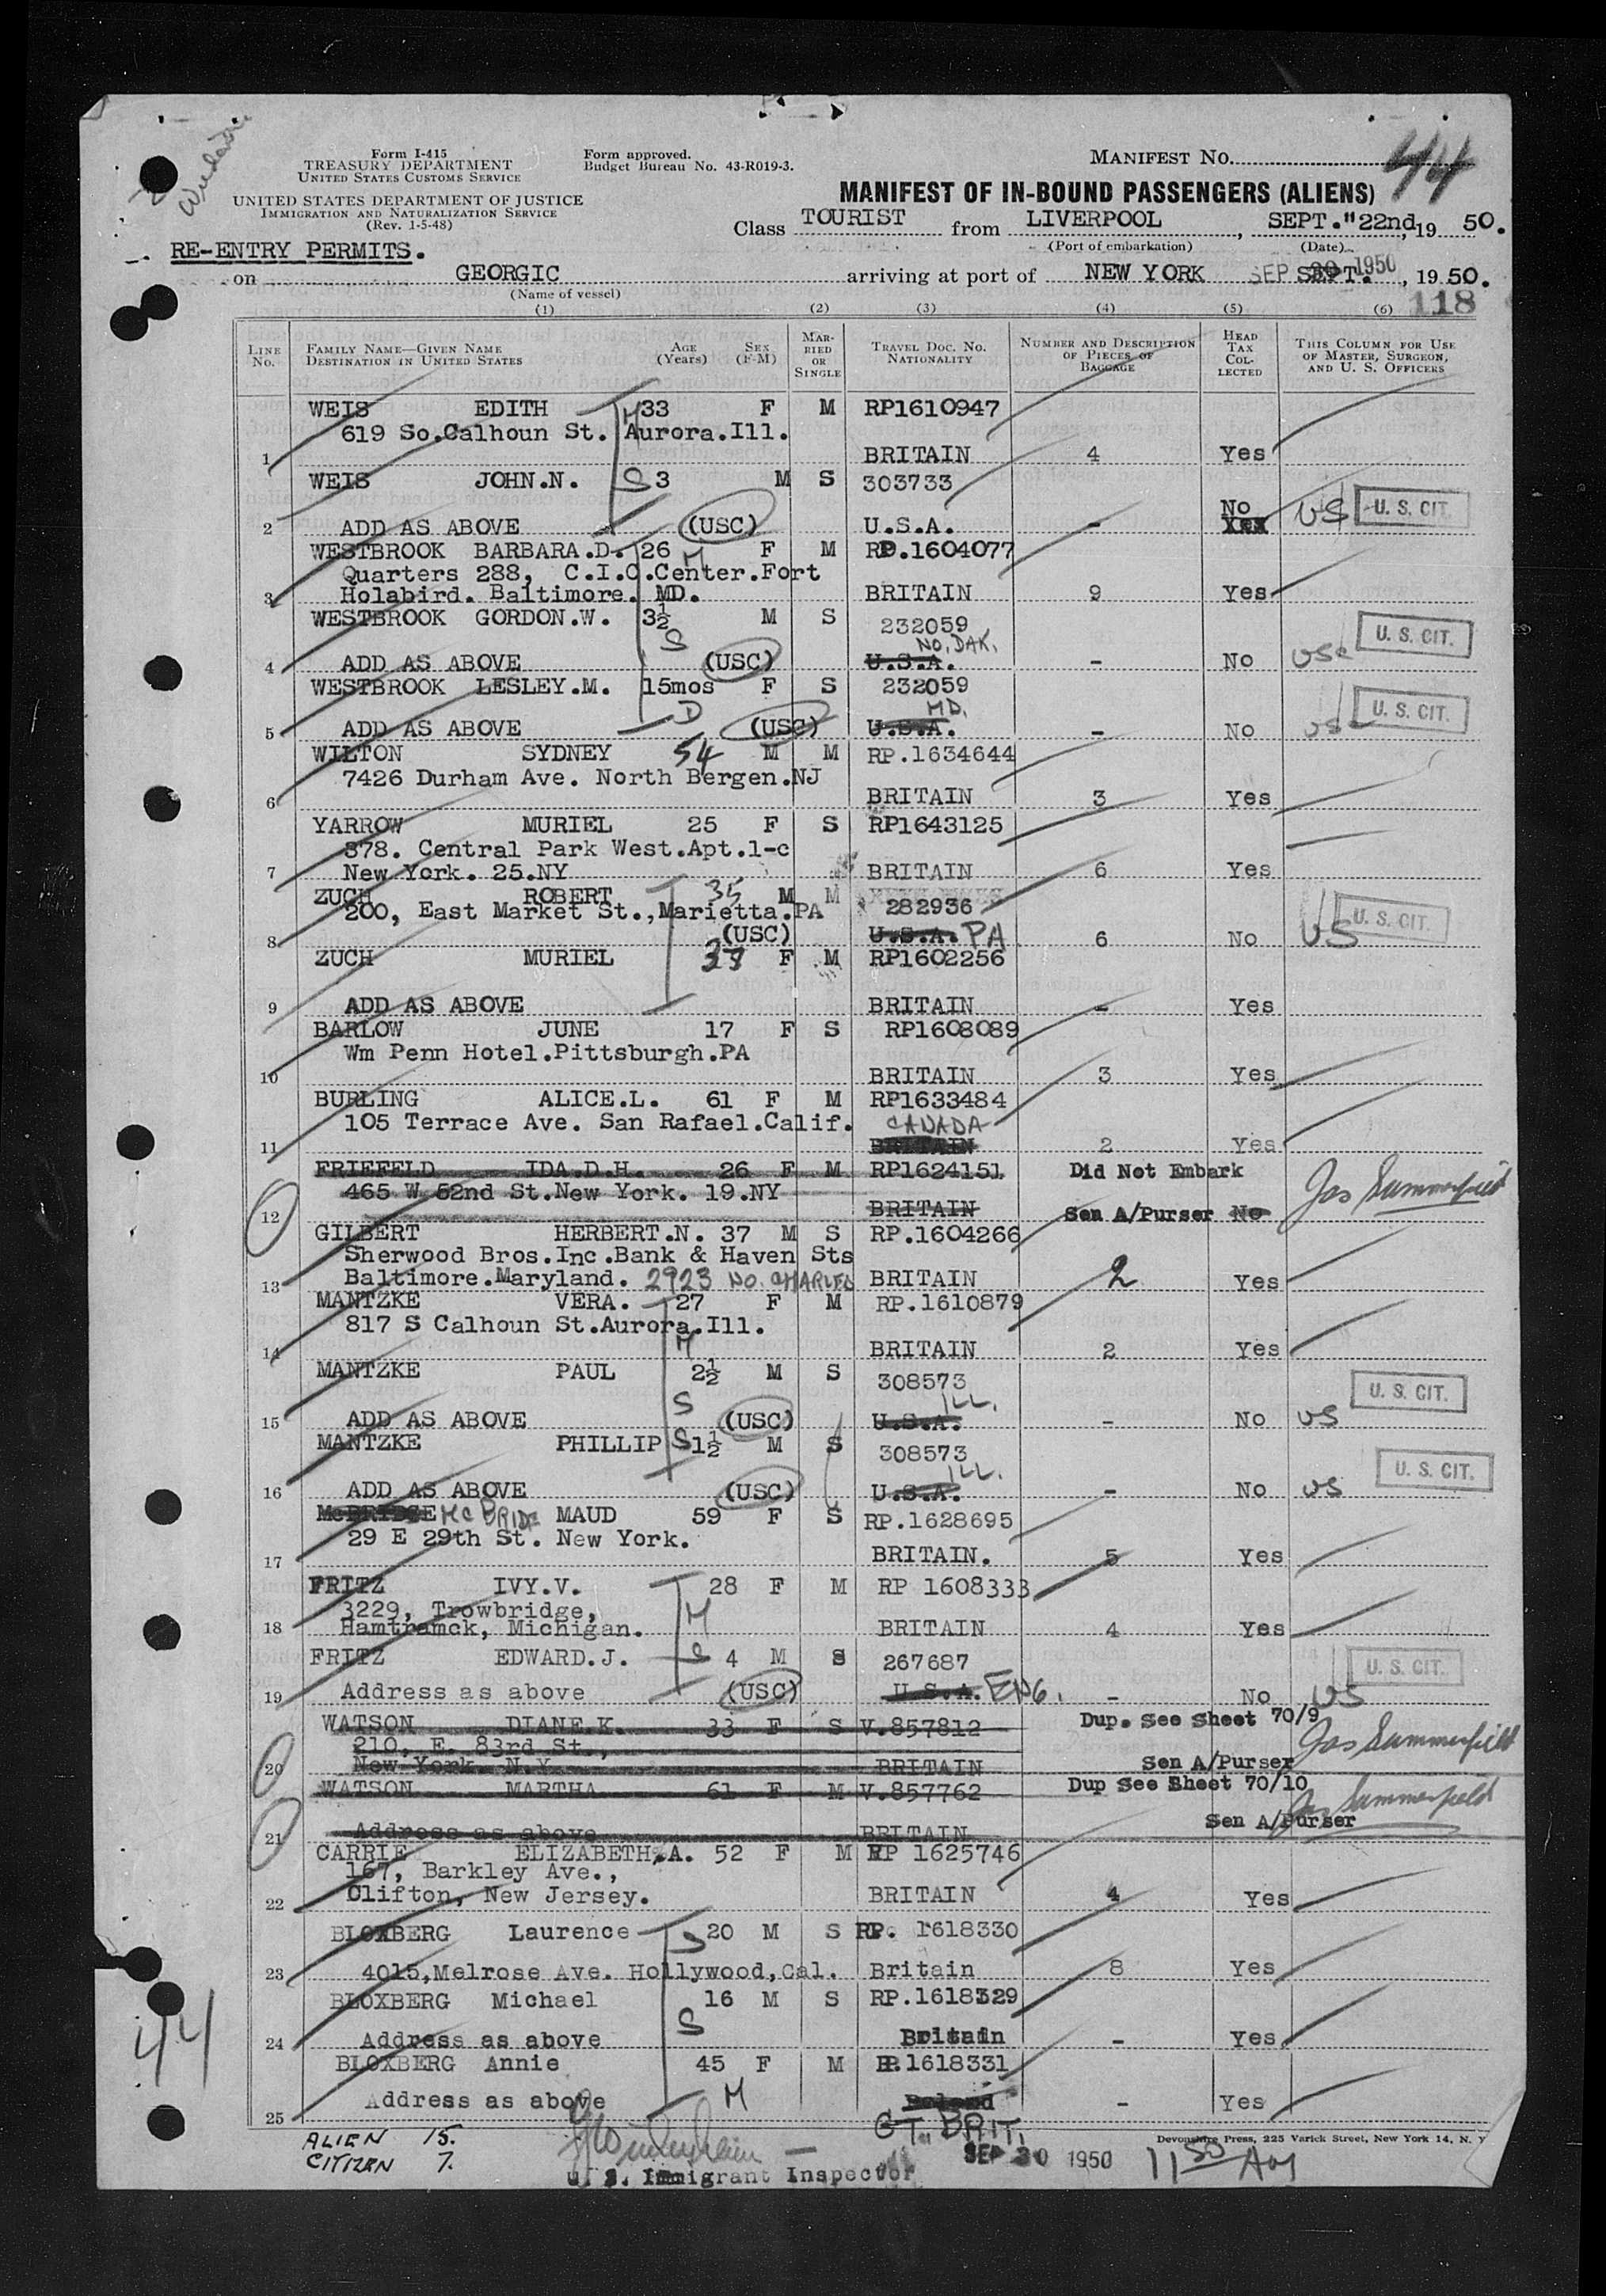 Form I-415
TREASURY DEPARTMENT
UNITED STATES CUSTOMS SERVICE
UNITED STATES DEPARTMENT OF JUSTICE
IMMIGRATION AND NATURALIZATION SERVICE
(Rev. 1-5-48)
Form approved.
Budget Bureau No. 43-R019-3.
MANIFEST No. 44
MANIFEST OF IN-BOUND PASSENGERS (ALIENS)
Class TOURIST from LIVERPOOL, SEPT. "22nd, 19 50.
(Port of embarkation) (Date)
RE-ENTRY PERMITS.
on GEORGIC arriving at port of NEW YORK SEP 30 1950 SEPT. , 19 50.
(Name of vessel)
118
(1) (2) (3) (4) (5) (6)
LINE No. FAMILY NAME—GIVEN NAME DESTINATION IN UNITED STATES AGE (Years) SEX (F-M) MARRIED OR SINGLE TRAVEL DOC. NO. NATIONALITY NUMBER AND DESCRIPTION OF PIECES OF BAGGAGE HEAD TAX COLLECTED THIS COLUMN FOR USE OF MASTER, SURGEON, AND U. S. OFFICERS
WEIS EDITH M 33 F M RP1610947
619 So.Calhoun St. Aurora.Ill.
1 BRITAIN 4 Yes
WEIS JOHN.N. S 3 M S 303733
No
2 ADD AS ABOVE (USC) U.S.A. - Yes US U. S. CIT.
WESTBROOK BARBARA.D. 26 M F M RP.1604077
Quarters 288, C.I.C.Center.Fort
3 Holabird. Baltimore. MD. BRITAIN 9 Yes
WESTBROOK GORDON.W. 3½ M S 232059
S NO. DAK. U. S. CIT.
4 ADD AS ABOVE (USC) U.S.A. - No USC
WESTBROOK LESLEY.M. 15mos F S 232059
D MD. U. S. CIT.
5 ADD AS ABOVE (USC) U.S.A. - No USC
WILTON SYDNEY 54 M M RP.1634644
7426 Durham Ave. North Bergen.NJ
6 BRITAIN 3 Yes
YARROW MURIEL 25 F S RP1643125
378. Central Park West.Apt.1-c
7 New York. 25.NY BRITAIN 6 Yes
ZUCH ROBERT 35 M M 282936
200, East Market St.,Marietta.PA U. S. CIT.
8 (USC) U.S.A. PA 6 No US
ZUCH MURIEL F M RP1602256
9 ADD AS ABOVE BRITAIN - Yes
BARLOW JUNE 17 F S RP1608089
Wm Penn Hotel.Pittsburgh.PA
10 BRITAIN 3 Yes
BURLING ALICE.L. 61 F M RP1633484
105 Terrace Ave. San Rafael.Calif. CANADA
11 BRITAIN 2 Yes
FRIEFELD IDA.D.H. 26 F M RP1624151 Did Not Embark
465 W 52nd St.New York. 19.NY Jas Summerfield
12 BRITAIN Sen A/Purser No
GILBERT HERBERT.N. 37 M S RP.1604266
Sherwood Bros.Inc.Bank & Haven Sts
13 Baltimore.Maryland. 2923 NO. CHARLES BRITAIN 2 Yes
MANTZKE VERA. 27 F M RP.1610879
817 S Calhoun St.Aurora.Ill.
14 M BRITAIN 2 Yes
MANTZKE PAUL 2½ M S 308573
S ILL. U. S. CIT.
15 ADD AS ABOVE (USC) U.S.A. - No US
MANTZKE PHILLIP S 1½ M S 308573
ILL. U. S. CIT.
16 ADD AS ABOVE (USC) U.S.A. - No US
McBRIDGE McBRIDE MAUD 59 F S RP.1628695
29 E 29th St. New York.
17 BRITAIN. 5 Yes
FRITZ IVY.V. 28 F M RP 1608333
3229, Trowbridge, M
18 Hamtramck, Michigan. BRITAIN 4 Yes
FRITZ EDWARD.J. S 4 M S 267687 U. S. CIT.
19 Address as above (USC) U.S.A. ENG. - No US
WATSON DIANE.K. 33 F S V.857812 Dup. See Sheet 70/9
210, E. 83rd St., Jas Summerfield
20 New York. N.Y. BRITAIN Sen A/Purser
WATSON MARTHA 61 F M V.857762 Dup See Sheet 70/10
Jas Summerfield
21 Address as above BRITAIN Sen A/Purser
CARRIE ELIZABETH.A. 52 F M RP 1625746
167, Barkley Ave.,
22 Clifton, New Jersey. BRITAIN 4 Yes
BLOXBERG Laurence S 20 M S RP. 1618330
23 4015,Melrose Ave. Hollywood,Cal. Britain 8 Yes
BLOXBERG Michael 16 M S RP.1618329
S
24 Address as above Britain - Yes
BLOXBERG Annie 45 F M RP.1618331
25 Address as above M Poland - Yes
GT. BRIT.
44
ALIEN 15.
CITIZEN 7.
U. S. Immigrant Inspector
SEP 30 1950
Devonshire Press, 225 Varick Street, New York 14, N. Y.
11 50 AM